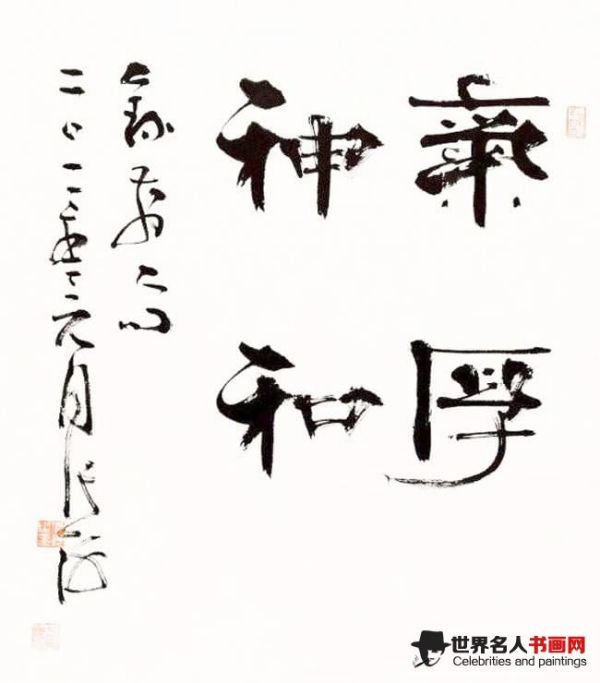 氣厚
神和
二〇一一年元月张海
世界名人书画网
Celebrities and paintings